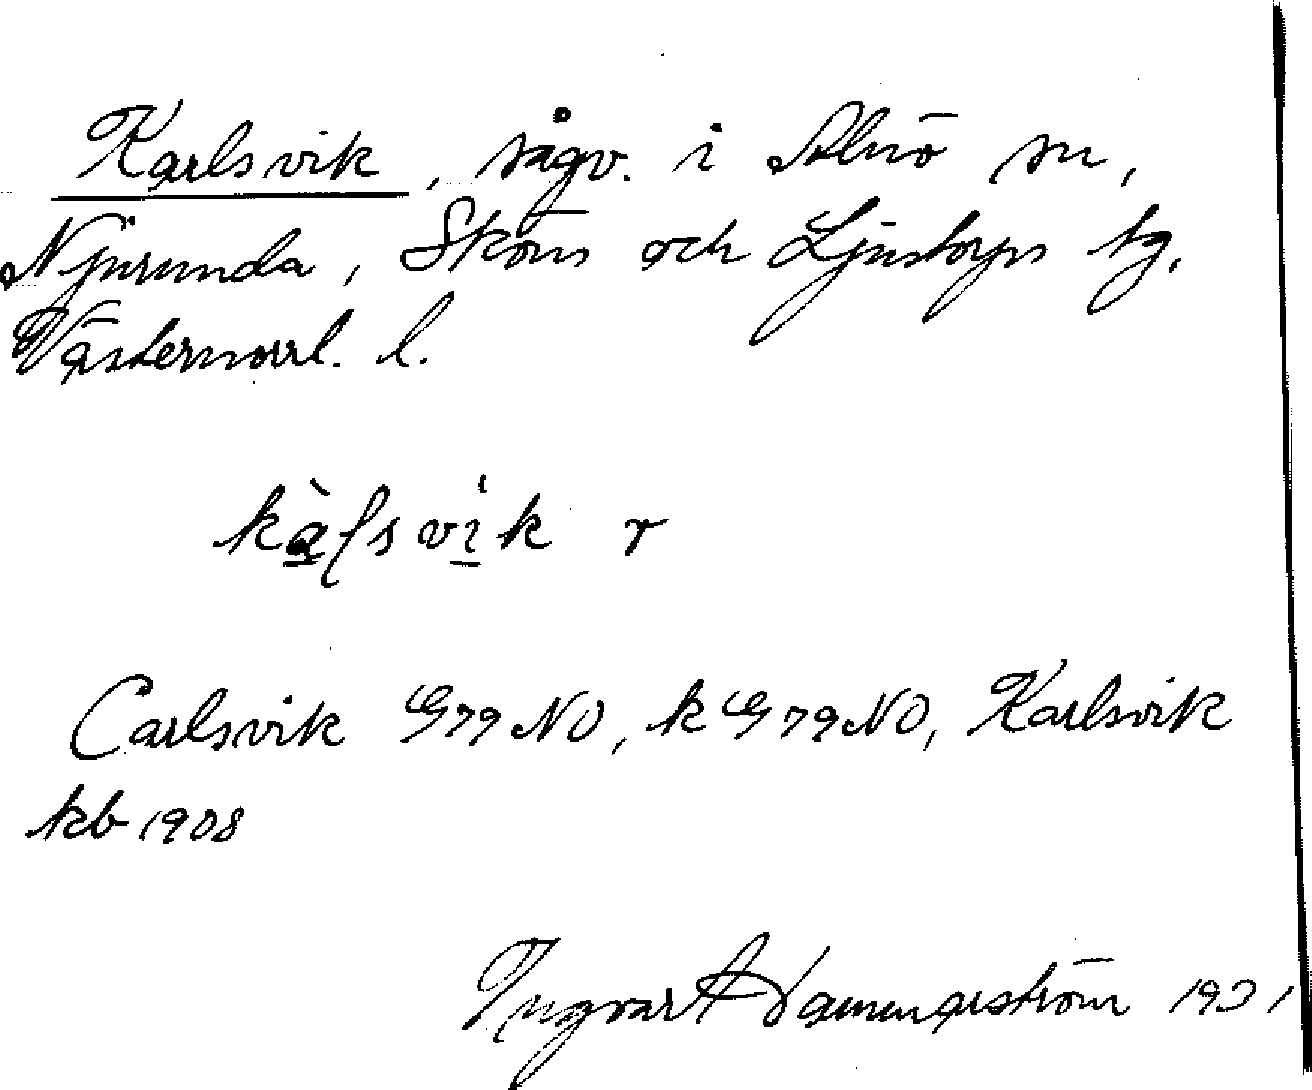 Karlsvik, sågv. i Alnö sn,
Njurunda, Sköns och Ljustorps tg,
Västernorrl. l.
Carlsvik G79NO, k G79NO, Karlsvik
kb 1908
Ingvar